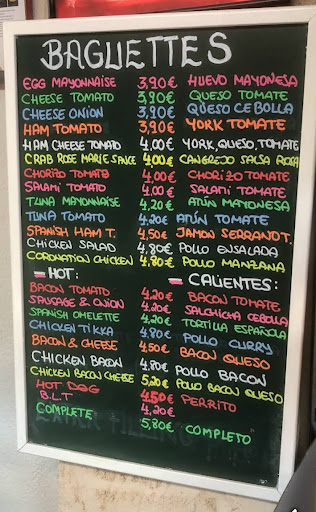 BAGUETTES
EGG MAYONNAISE 3,90€ HUEVO MAYONESA
CHEESE TOMATO 3,90€ QUESO TOMATE
CHEESE ONION 3,90€ QUESO CEBOLLA
HAM TOMATO 3,90€ YORK TOMATE
HAM CHEESE TOMATO 4,00€ YORK, QUESO, TOMATE
CRAB ROSE MARIE SAUCE 4,00€ CANGREJO SALSA ROSA
CHORIZO TOMATO 4,00€ CHORIZO TOMATE
SALAMI TOMATO 4,00€ SALAMI TOMATE
TUNA MAYONNAISE 4,20€ ATÚN MAYONESA
TUNA TOMATO 4,20€ ATÚN TOMATE
SPANISH HAM T. 4,50€ JAMON SERRANO T.
CHICKEN SALAD 4,80€ POLLO ENSALADA
CORONATION CHICKEN 4,80€ POLLO MANZANA
HOT: CALIENTES:
BACON TOMATO 4,20€ BACON TOMATE
SAUSAGE & ONION 4,20€ SALCHICHA CEBOLLA
SPANISH OMELETTE 4,20€ TORTILLA ESPAÑOLA
CHICKEN TIKKA 4,80€ POLLO CURRY
BACON & CHEESE 4,50€ BACON QUESO
CHICKEN BACON 4,80€ POLLO BACON
CHICKEN BACON CHEESE 5,20€ POLLO BACON QUESO
HOT DOG 4,50€ PERRITO
B.L.T 4,20€
COMPLETE 5,80€ COMPLETO